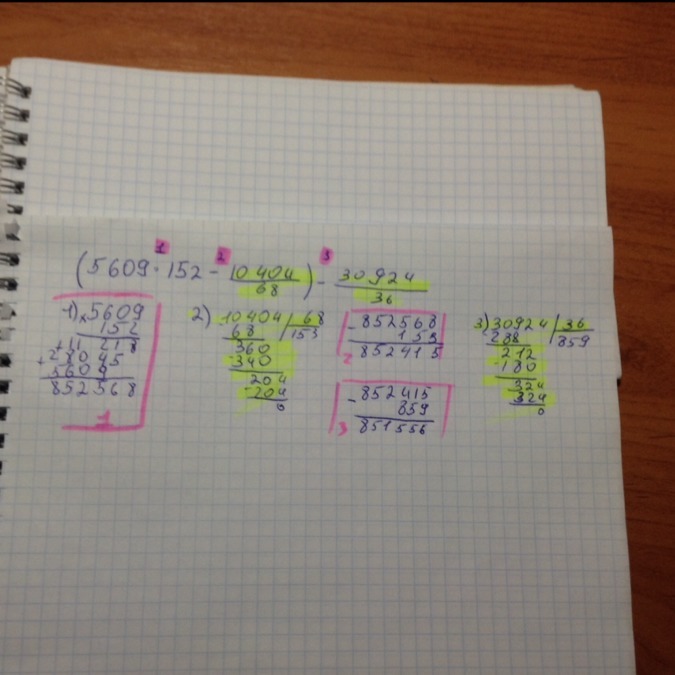 1 2 3
(5609 · 152 - 10 404 / 68) - 30 924 / 36
1) × 5609
152
+ 11 218
+ 28045
5609
852 568
1
2) - 10404 | 68
68 | 153
360
- 340
204
- 204
0
- 852568
153
852 415
2
- 852 415
859
851 556
3
3) 30924 | 36
288 | 859
212
- 180
324
324
0